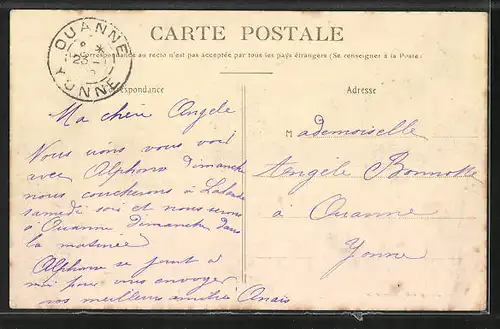 CARTE POSTALE
OUANNE
YONNE
La Correspondance au recto n'est pas acceptée par tous les pays étrangers (Se renseigner à la Poste)
Correspondance
Adresse
Ma chère Angèle
Nous irons vous voir
avec Alphonse dimanche
nous coucherons à Lalande
samedi soir et nous serons
à Ouanne dimanche dans
la matinée
Alphonse se joint à
moi pour vous envoyer
nos meilleurs amitiés Anaïs
Mademoiselle
Angèle
à Ouanne
Yonne